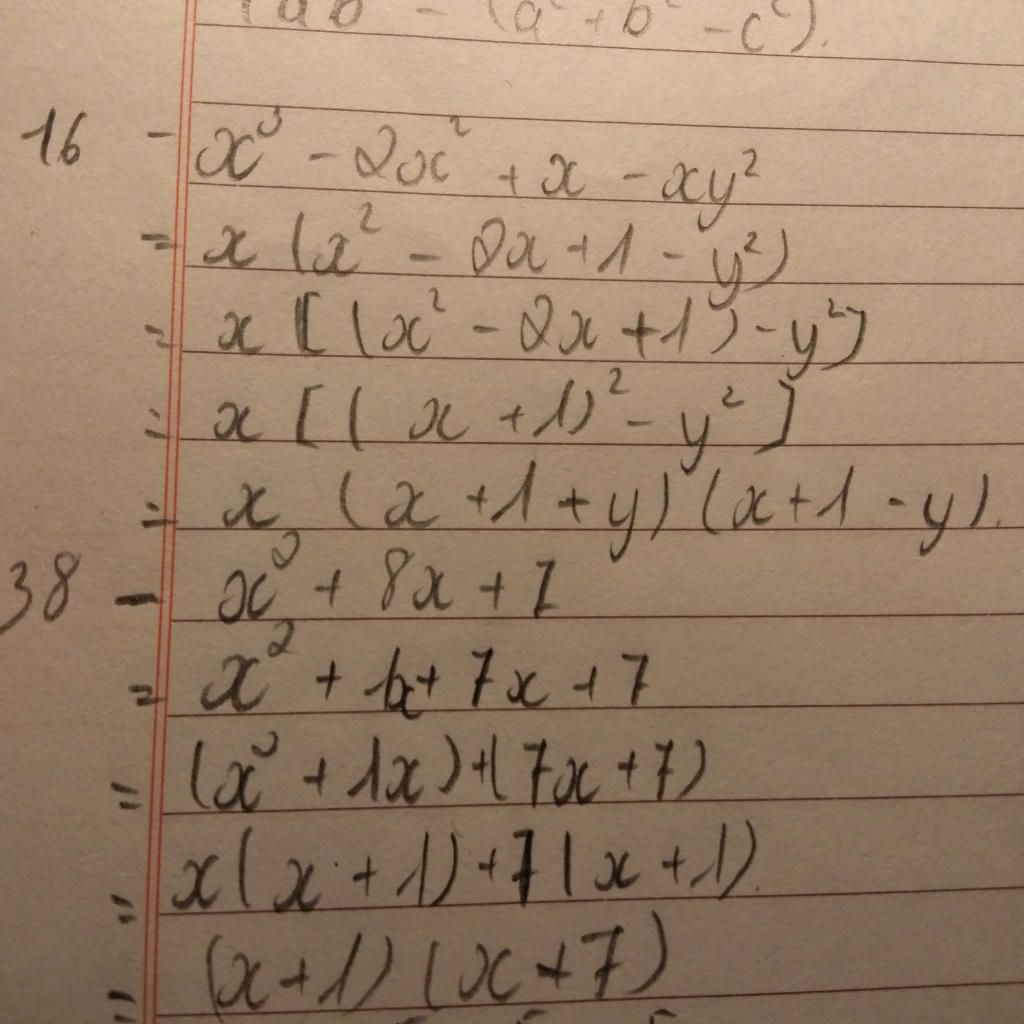 (ab - (a² + b² - c²).
16 - x³ - 2x² + x - xy²
= x (x² - 2x + 1 - y²)
= x [(x² - 2x + 1) - y²]
= x [( x + 1)² - y² ]
= x (x + 1 + y) (x + 1 - y).
38 - x² + 8x + 7
= x² + 1x + 7x + 7
= (x² + 1x) + (7x + 7)
= x( x + 1) + 7( x + 1).
= (x + 1) (x + 7)